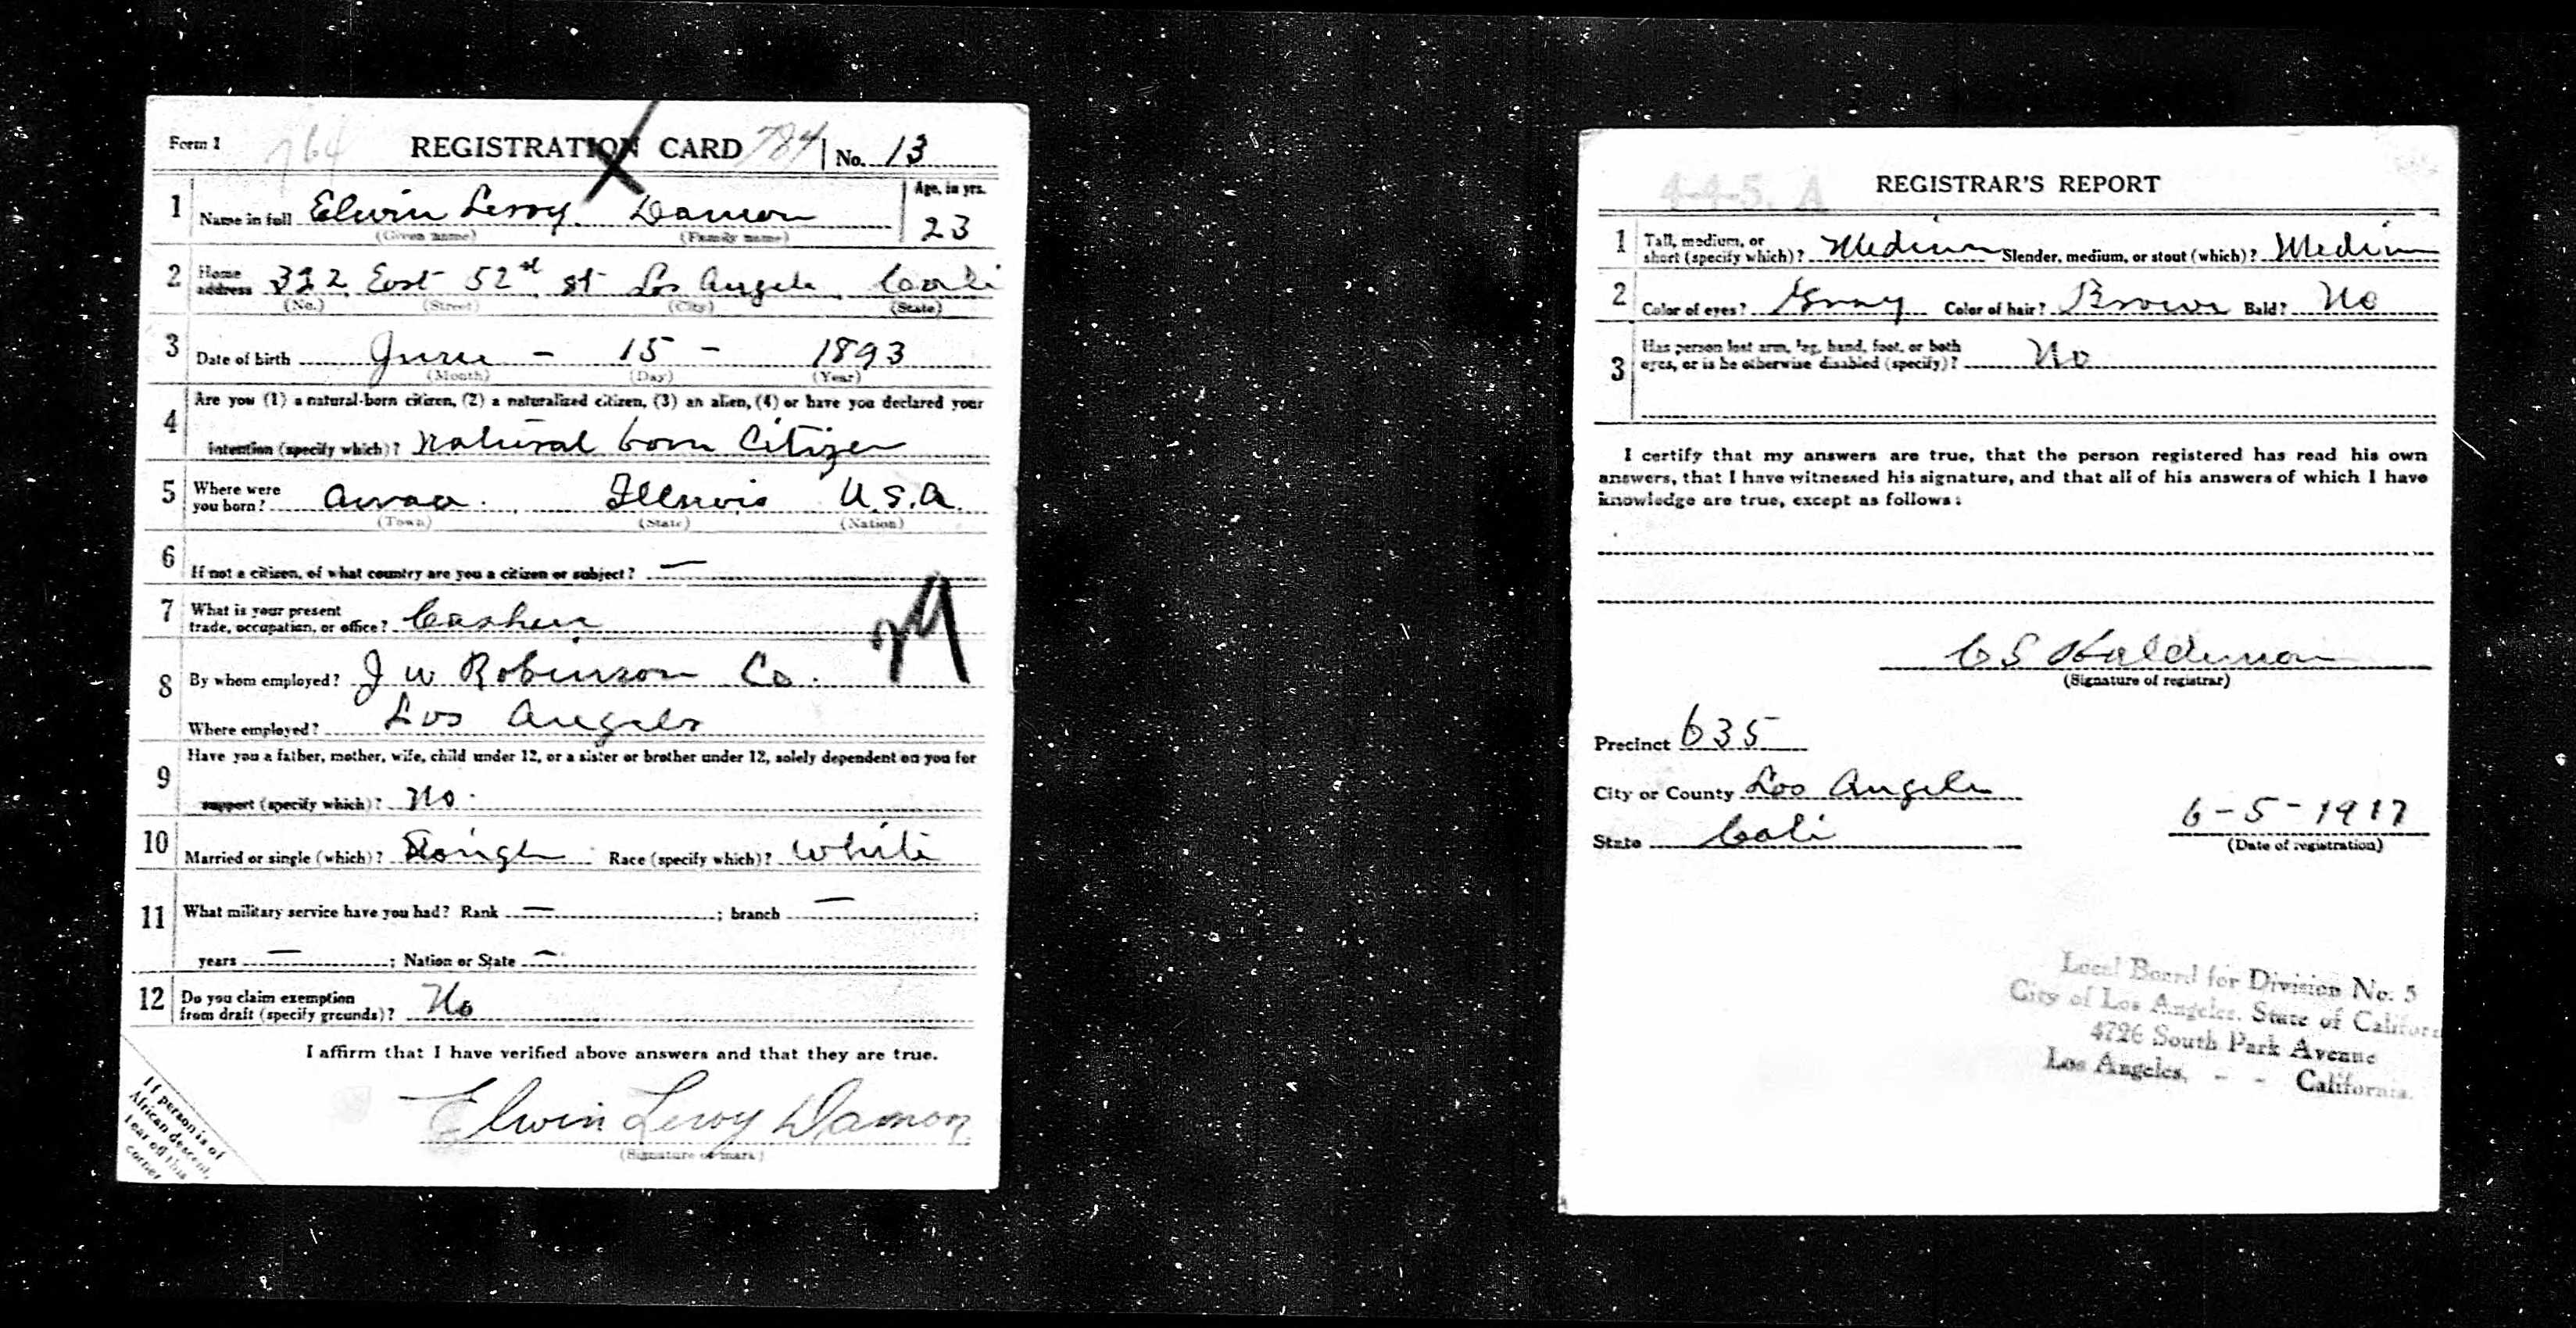 Form 1 764 REGISTRATION CARD 784 No. 13
1 Name in full Elwin Leroy Damon Age, in yrs.
(Given name) (Family name) 23
2 Home address 322 East 52nd st Los Angele Cali
(No.) (Street) (City) (State)
3 Date of birth June - 15 - 1893
(Month) (Day) (Year)
4 Are you (1) a natural-born citizen, (2) a naturalized citizen, (3) an alien, (4) or have you declared your
intention (specify which)? Natural born Citizen
5 Where were you born? Illinois U.S.A.
(Town) (State) (Nation)
6 If not a citizen, of what country are you a citizen or subject? —
7 What is your present
trade, occupation, or office? Cashier
8 By whom employed? J W Robinson Co.
Where employed? Los Angeles
9 Have you a father, mother, wife, child under 12, or a sister or brother under 12, solely dependent on you for
support (specify which)? No.
10 Married or single (which)? Single Race (specify which)? White
11 What military service have you had? Rank — ; branch — ;
years — ; Nation or State —
12 Do you claim exemption
from draft (specify grounds)? No
I affirm that I have verified above answers and that they are true.
Elwin Leroy Damon
(Signature or mark)
If person is of
African descent,
tear off this
corner.
4-4-5. A REGISTRAR'S REPORT
1 Tall, medium, or
short (specify which)? Medium Slender, medium, or stout (which)? Medium
2 Color of eyes? Gray Color of hair? Brown Bald? No
3 Has person lost arm, leg, hand, foot, or both
eyes, or is he otherwise disabled (specify)? No
I certify that my answers are true, that the person registered has read his own
answers, that I have witnessed his signature, and that all of his answers of which I have
knowledge are true, except as follows:
C S Haldeman
(Signature of registrar)
Precinct 635
City or County Los Angele
State Cali 6-5-1917
(Date of registration)
Local Board for Division No. 5
City of Los Angeles. State of Californ
4726 South Park Avenue
Los Angeles, - - California.